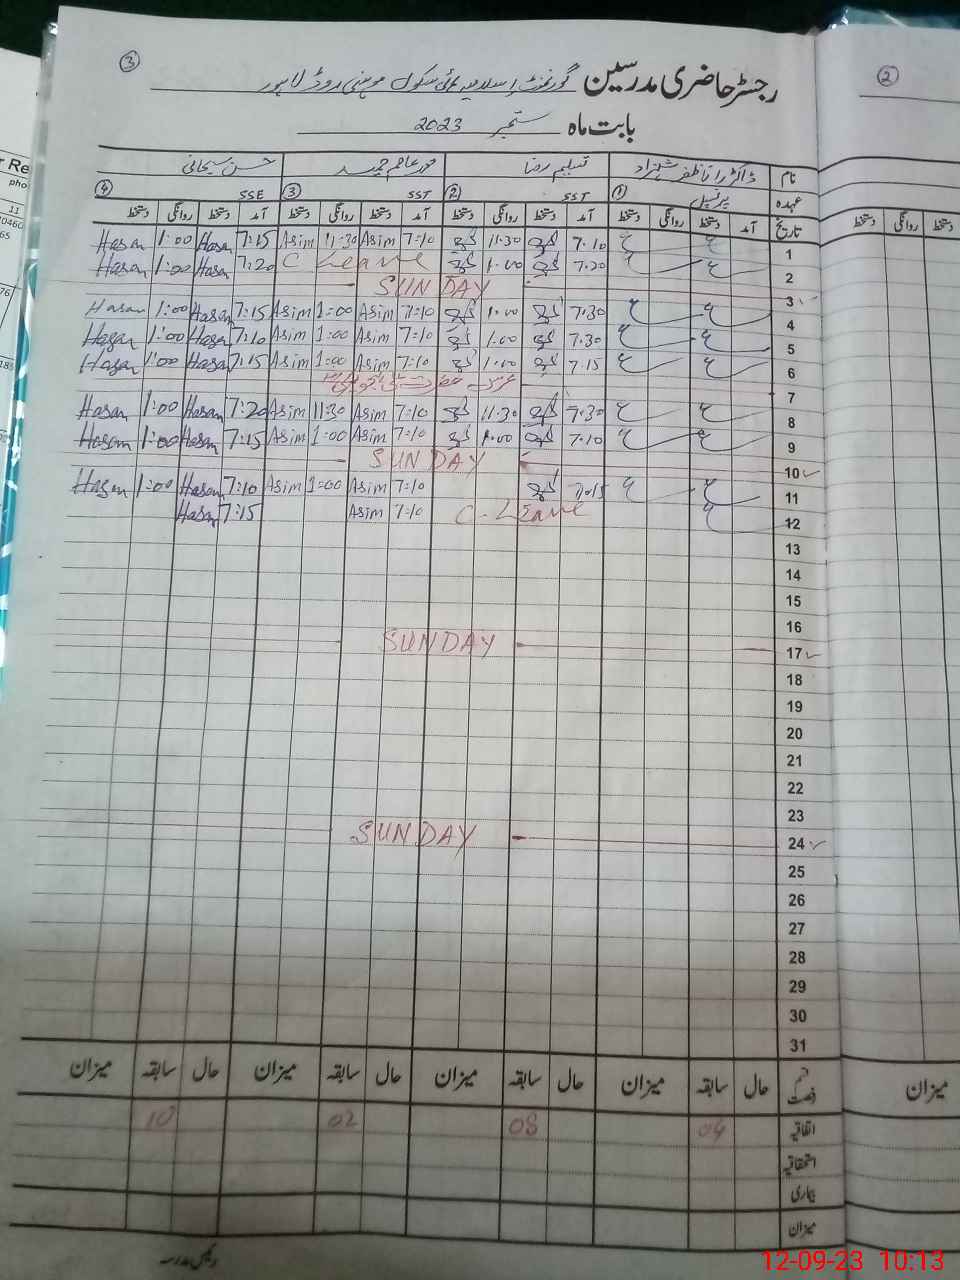 ③
رجسٹر حاضری مدرسین گورنمنٹ اسلامیہ ہائی سکول موہنی روڈ لاہور
بابت ماہ ستمبر 2023
نام ڈاکٹر رانا ظفر شہزاد تسلیم رضا محمد عاصم حسن سبحانی
عہدہ پرنسپل ① SST ② SST ③ SSE ④
تاریخ آمد دستخط روانگی دستخط آمد دستخط روانگی دستخط آمد دستخط روانگی دستخط آمد دستخط روانگی دستخط
Hasan 1:00 Hasan 7:15 Asim 11:30 Asim 7:10 11.30 7.10 1
Hasan 1:00 Hasan 7:20 C Leave 1.00 7.20 2
SUNDAY 3
Hasan 1:00 Hasan 7:15 Asim 1:00 Asim 7:10 1.00 7.30 4
Hasan 1:00 Hasan 7:10 Asim 1:00 Asim 7:10 1.00 7.30 5
Hasan 1:00 Hasan 7:15 Asim 1:00 Asim 7:10 1.00 7.15 6
عرس حضرت 7
Hasan 1:00 Hasan 7:20 Asim 11:30 Asim 7:10 11.30 7.30 8
Hasan 1:00 Hasan 7:15 Asim 1:00 Asim 7:10 1.00 7.10 9
SUNDAY 10
Hasan 1:00 Hasan 7:10 Asim 1:00 Asim 7:10 7.15 11
Hasan 7:15 Asim 7:10 C. Leave 12
13
14
15
16
SUNDAY 17
18
19
20
21
22
23
SUNDAY 24
25
26
27
28
29
30
31
قسم رخصت حال سابقہ میزان حال سابقہ میزان حال سابقہ میزان حال سابقہ میزان
اتفاقیہ 04 08 02 10
استحقاقیہ
بیماری
میزان
رئیس مدرسہ
②
دستخط روانگی دستخط
میزان
12-09-23 10:13